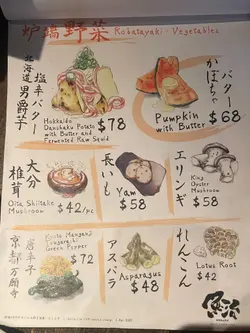 炉端野菜 Robatayaki - Vegetables
北海道男爵芋
塩辛バター
Hokkaido
Danshaku Potato
with Butter and
Fermented Raw Squid
$78
かぼちゃ
バター
Pumpkin
with Butter
$68
大分
椎茸
Oita Shiitake
Mushroom
$42/pc
長いも
Yam
$58
エリンギ
King
Oyster
Mushroom
$58
京都万願寺
唐辛子
Kyoto Manganji
Green Pepper
$72
アスパラ
Asparagus
$48
れんこん
Lotus Root
$42